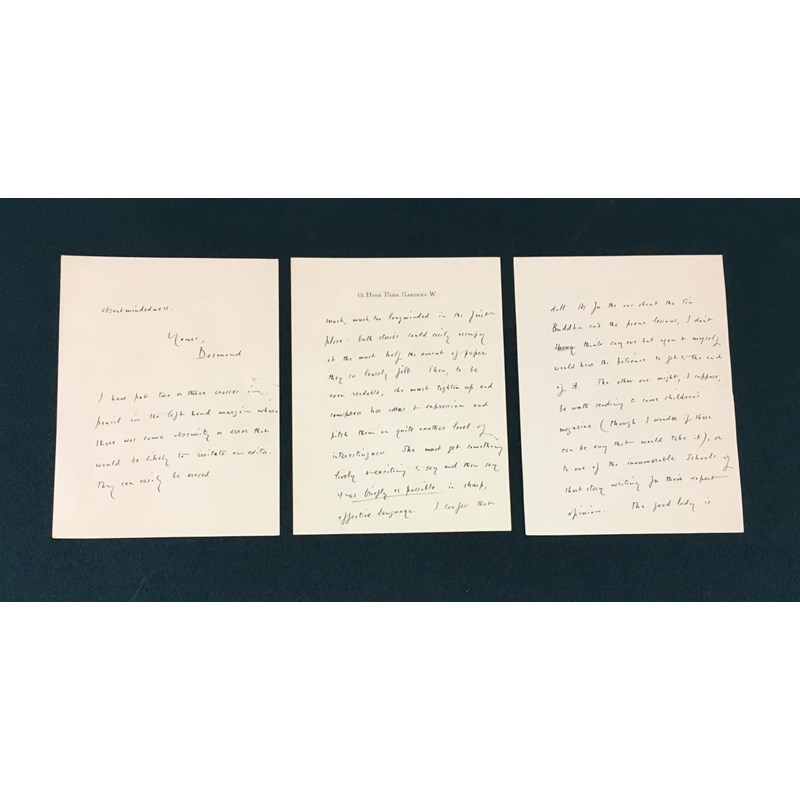 absentmindedness.
Yours,
Desmond
I have put two or three crosses in
pencil in the left hand margin where
there was some obscurity or error that
would be likely to irritate an editor.
They can easily be erased
13, HYDE PARK GARDENS. W.
much, much too longwinded in the first
place: both stories could easily occupy
at the most half the amount of paper
they so loosely fill. Then, to be
even readable, she must tighten up and
compress her ideas & expression and
pitch them on quite another level of
interestingness. She must get something
lively & exciting to say and then say
it as briefly as possible in sharp,
effective language. I confess that
dull. As for the one about the Tin
Buddha and the piano lessons, I don't
think anyone but you & myself
would have the patience to get to the end
of it. The other one might, I suppose,
be worth sending to some children's
magazine (though I wonder if there
can be any that would take it), or
to one of the innumerable Schools of
short story writing for their expert
opinion. The good lady is